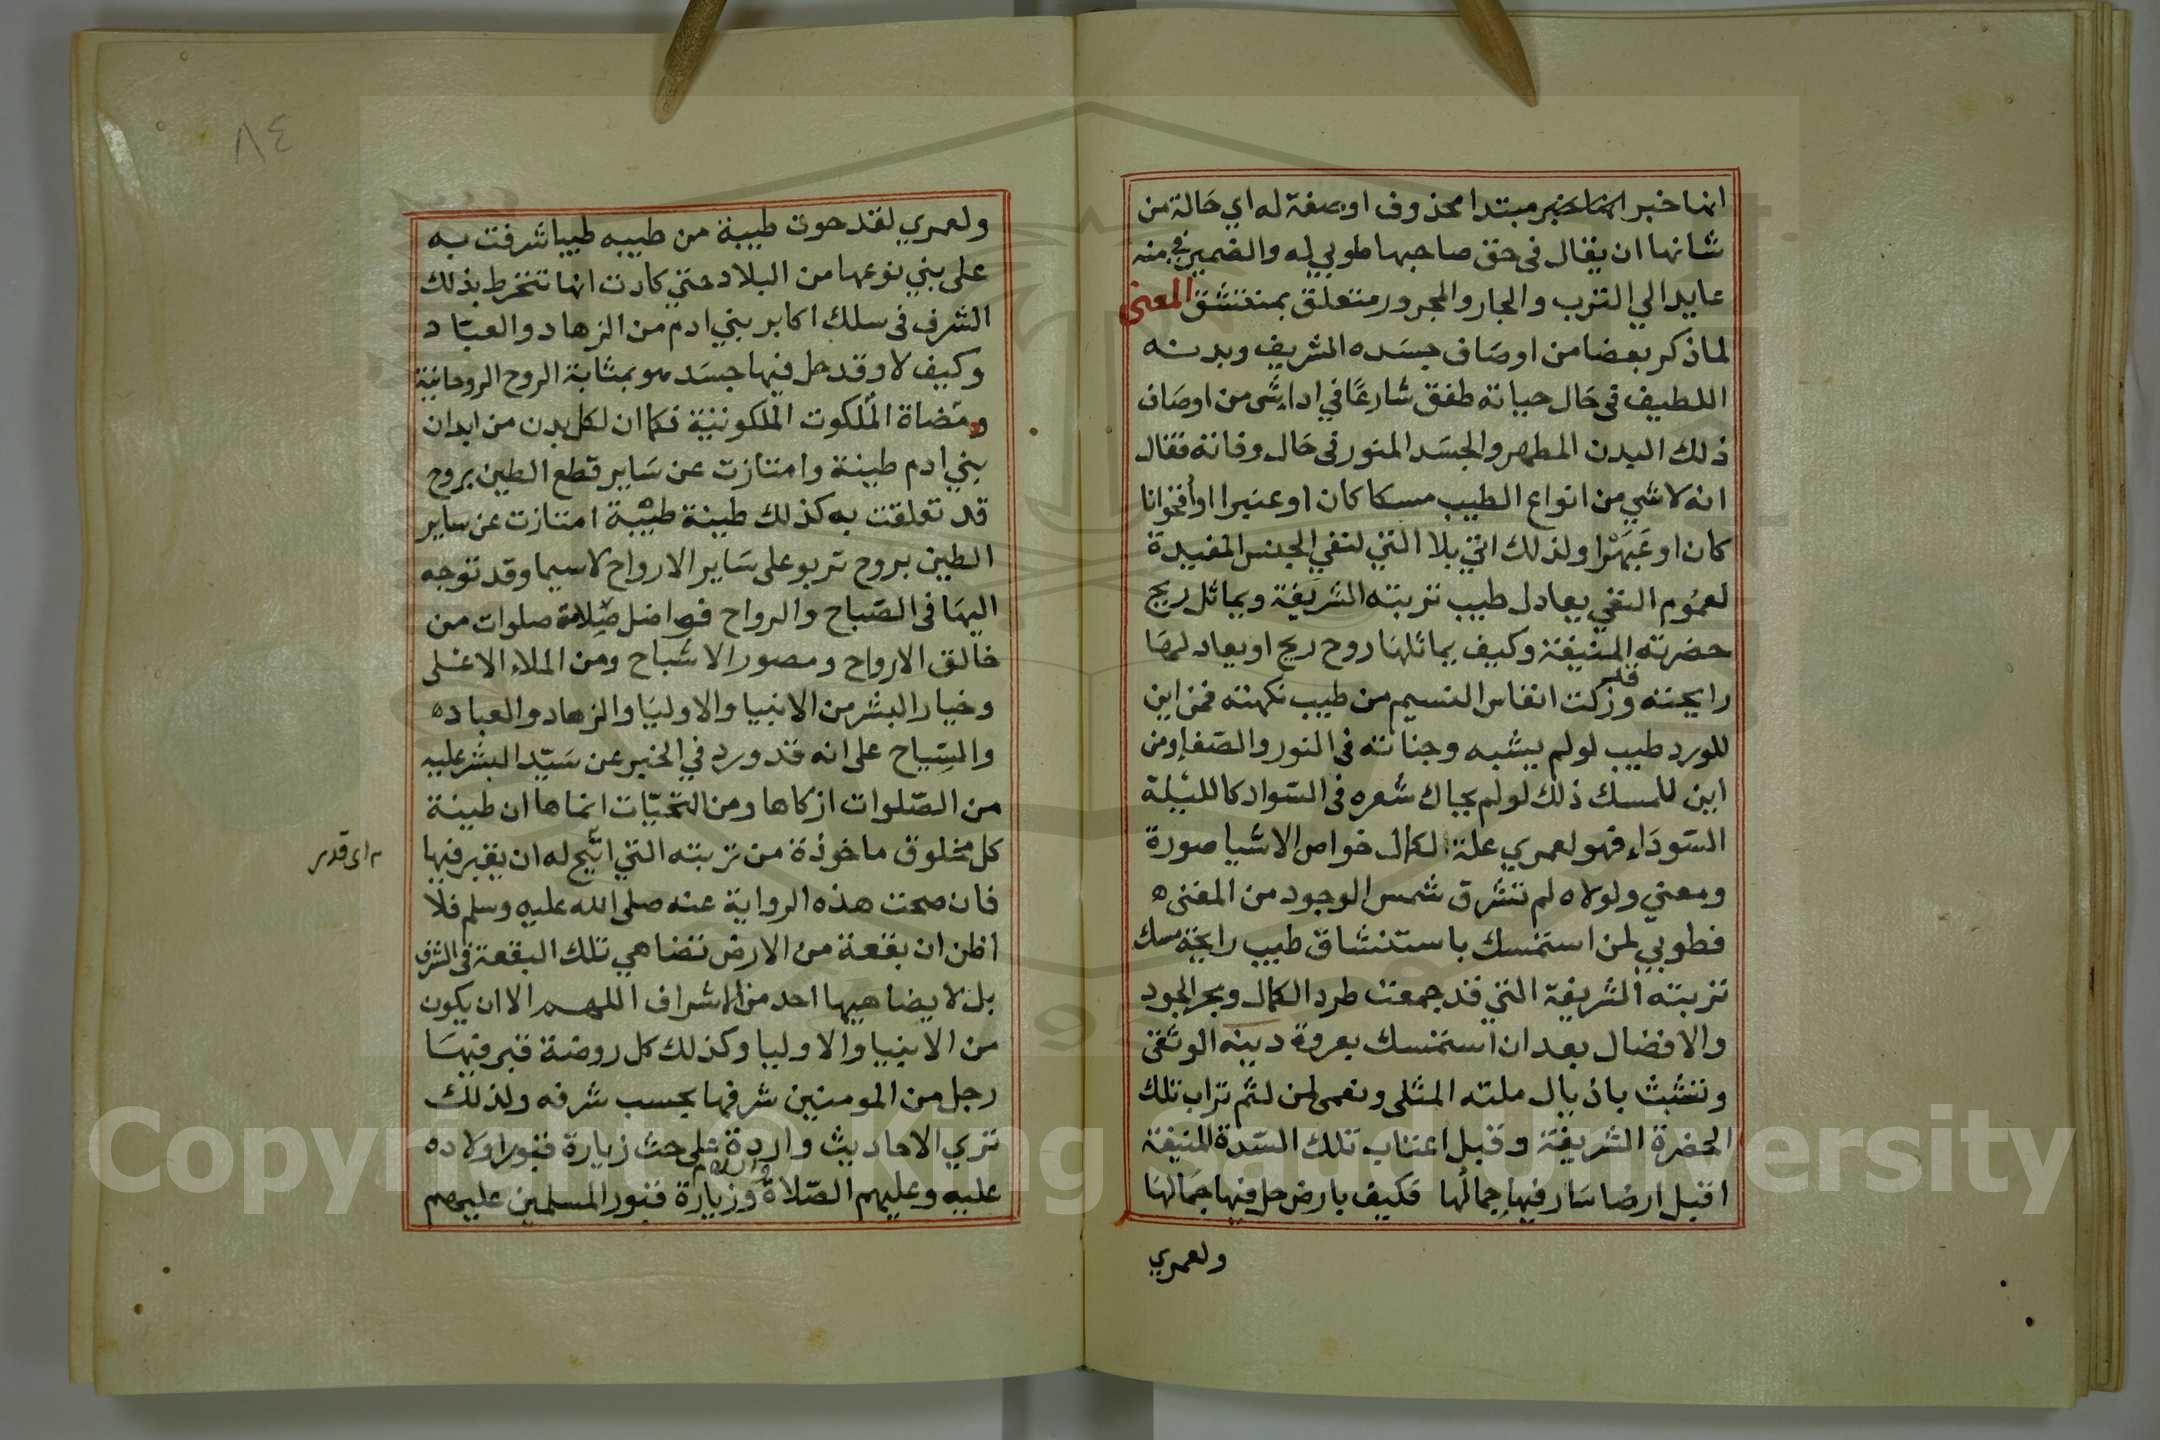 انها خبر مبتدا محذوف او صفة له اي حالة من
شانها ان يقال في حق صاحبها طوبي له والضمير في منه
عايد الي الترب والجار والمجرور متعلق بمنتشق المعنى
لما ذكر بعضا من اوصاف جسده الشريف وبدنه
اللطيف في حال حياته طفق شارعًا في ادا شي من اوصاف
ذلك البدن المطهر والجسد المنور في حال وفاته فقال
انه لا شي من انواع الطيب مسكا كان او عنبرا او أقحوانا
كان او عبهرا ولذلك اتي بلا التي لنفي الجنس المفيدة
لعموم النفي يعادل طيب تربته الشريفة ويماثل ريح
حضرته المنيفة وكيف يماثلها روح ريح او يعاد لها
رايحته وزكت انفاس النسيم من طيب نكهته فمن اين
للورد طيب لو لم يشبه وجناته في النور والصفا ومن
اين للمسك ذلك لو لم يحاك شعره في السواد كالليلة
السوداء فهو لعمري علة لكمال خواص الاشيا صورة
ومعني ولولاه لم تشرق شمس الوجود من المغنى
فطوبي لمن استمسك باستنشاق طيب رايحة مسك
تربته الشريفة التي قد جمعت طرد الكمال وبحر الجود
والافضال بعد ان استمسك بعروة دينه الوثقى
وتشبث باذيال ملته المثلى ونعمى لمن لثم تراب تلك
الحضرة الشريفة وقبل اعتاب تلك السدة المنيفة
اقبل ارضا سار فيها جمالها فكيف بارض حل فيها جمالها
ولعمري
٨٤
ولعمري لقد حوت طيبة من طيبه طيبا شرفت به
على بني نوعها من البلاد حتي كادت انها تنخرط بذلك
الشرف في سلك اكابر بني ادم من الزهاد والعباد
وكيف لا وقد حل فيها جسد هو بمثابة الروح الروحانية
ومضاة الملكوت الملكوتية فكما ان لكل بدن من ابدان
بني ادم طينة وامتازت عن ساير قطع الطين بروح
قد تعلقت به كذلك طينة طيبة امتازت عن ساير
الطين بروح تربو على ساير الارواح لاسيما وقد توجه
اليها في الصباح والرواح فواضل صلات صلوات من
خالق الارواح ومصور الاشباح ومن الملاء الاعلى
وخيار البشر من الانبيا والاوليا والزهاد والعباد
والسياح على انه قد ورد في الخبر عن سيد البشر عليه
من الصلوات ازكاها ومن التحيات انماها ان طينة
كل مخلوق ماخوذة من تربته التي اتيح له ان يقبر فيها
اى قدر
فان صحت هذه الرواية عنه صلى الله عليه وسلم فلا
اظن ان بقعة من الارض تضاهي تلك البقعة في الشرف
بل لا يضاهيها احد من الاشراف اللهم الا ان يكون
من الانبيا والاوليا وكذلك كل روضة قبر فيها
رجل من المومنين شرفها بحسب شرفه ولذلك
تري الاحاديث واردة على حث زيارة قبور اولاده
عليه وعليهم الصلاة والسلام وزيارة قبور المسلمين عليهم